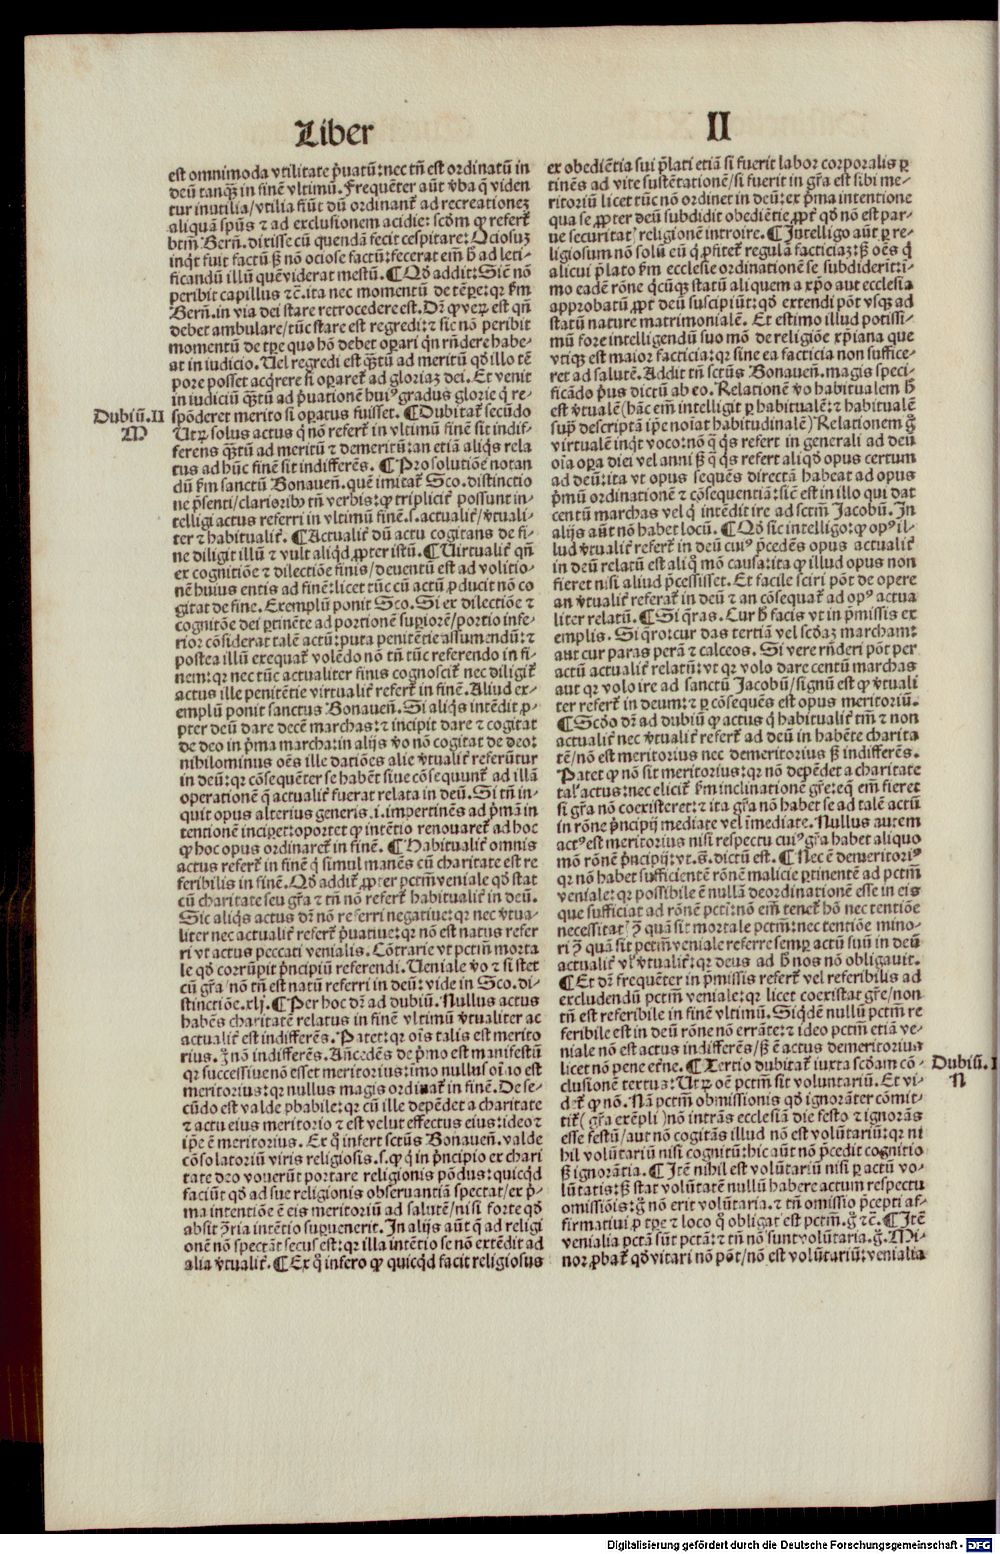 Liber
II
est omnimoda vtilitate p̄uatū: nec tn̄ est ordinatū in
deū tanqȝ in finē vltimū. Frequēter aūt v̄ba q̄ viden
tur inutilia/vtilia fiūt dū ordinant᷑ ad recreationeȝ
aliquā spūs ⁊ ad exclusionem acidie: scd̄m ꝙ refert᷑
btm̄ Bern̄. dixisse cū quendā fecit cespitare: Ociosuȝ
inq̇t fuit factū sȝ nō ociose factū: fecerat em̄ h̄ ad leti-
ficandū illū quē viderat mestū. ¶ Qd̄ addit: Sic̄ nō
peribit capillus ⁊c̄. ita nec momentū de tp̄e: qꝛ km̄
Bern̄. in via dei stare retrocedere est. Dr̄ ꝙ veꝝ est qn̄
debet ambulare/tūc stare est regredi: ⁊ sic nō peribit
momentū de tp̄e quo hō debet oꝑari q̇n rn̄dere habe-
at in iudicio. Uel regredi est qȝtū ad meritū qd̄ illo tē
pore posset acq̇rere si oꝑaret᷑ ad gloriaȝ dei. Et venit
in iudiciū qȝtū ad p̄uationē huiꝰ gradus glorie q̇ re-
Dubiū. II
M
spōderet merito si oꝑatus fuisset. ¶ Dubitat᷑ secūdo
Utꝝ solus actus q̇ nō refert᷑ in vltimū finē sit indif-
ferens qȝtū ad meritū ⁊ demeritū: an etiā aliq̇s rela
tus ad hūc finē sit indifferēs. ¶ Pro solutiōe notan
dū km̄ sanctū Bonauen̄. quē imitat᷑ Sco. distinctio
ne p̄senti/clariorib⁹ tn̄ verbis: ꝙ triplicit᷑ possunt in-
telligi actus referri in vltimū finē. s. actualit᷑/v̄tuali-
ter ⁊ habitualit᷑. ¶ Actualit᷑ dū actu cogitans de fi-
ne diligit illū ⁊ vult aliq̇d ꝓpter istū. ¶ Uirtualit᷑ qn̄
ex cognitiōe ⁊ dilectiōe finis/deuentū est ad volitio-
nē huius entis ad finē: licet tūc cū actū ꝓducit nō co
gitat de fine. Exemplū ponit Sco. Si ex dilectiōe ⁊
cognitōe dei ꝑtinēte ad portionē suꝑiorē/portio infe-
rior cōsiderat talē actū: puta penitētie assumendū: ⁊
postea illū exequat᷑ volēdo nō tn̄ tūc referendo in fi-
nem: qꝛ nec tūc actualiter finis cognoscit᷑ nec diligit᷑
actus ille penitētie virtualit᷑ refert᷑ in finē. Aliud ex-
emplū ponit sanctus Bonauen̄. Si aliq̇s intēdit ꝓ-
pter deū dare decē marchas: ⁊ incipit dare ⁊ cogitat
de deo in p̄ma marcha: in alijs v̄o nō cogitat de deo:
nihilominus oēs ille datiōes alie v̄tualit᷑ referūtur
in deū: qꝛ cōsequēter se habēt siue cōsequunt᷑ ad illā
operationē q̄ actualit᷑ fuerat relata in deū. Si tn̄ in-
quit opus alterius generis .i. impertinēs ad p̄mā in
tentionē incipet: oportet ꝙ intētio renouaret᷑ ad hoc
ꝙ hoc opus ordinaret᷑ in finē. ¶ Habitualit᷑ omnis
actus refert᷑ in finē q̇ simul manēs cū charitate est re
feribilis in finē. Qd̄ addit᷑ ꝓpter pctm̄ veniale qd̄ stat
cū charitate seu gr̄a ⁊ tn̄ nō refert᷑ habitualit᷑ in deū.
Sic aliq̇s actus dr̄ nō referri negatiue: qꝛ nec v̄tua-
liter nec actualit᷑ refert᷑ p̄uatiue: qꝛ nō est natus refer
ri vt actus peccati venialis. Cōtrarie vt pctm̄ morta
le qd̄ corrūpit p̄ncipiū referendi. Ueniale v̄o ⁊ si stet
cū gr̄a/nō tn̄ est natū referri in deū: vide in Sco. di-
stinctiōe. xlj. ¶ Per hoc dr̄ ad dubiū. Nullus actus
habēs charitatē relatus in finē vltimū v̄tualiter ac
actualit᷑ est indifferēs. Patet: qꝛ oīs talis est merito
rius. g̊ nō indifferēs. An̄cedēs de p̄mo est manifestū
qꝛ successiue nō esset meritorius: imo nullus oīo est
meritorius: qꝛ nullus magis ordinat᷑ in finē. De se-
cūdo est valde ꝓbabile: qꝛ cū ille depēdet a charitate
⁊ actu eius meritorio ⁊ est velut effectus eius: ideo ⁊
ip̄e ē meritorius. Ex q̊ infert sctūs Bonauen̄. valde
cōsolatoriū viris religiosis. s. ꝙ q̇ in p̄ncipio ex chari
tate deo vouerūt portare religionis pōdus: quicq̇d
faciūt qd̄ ad sue religionis obseruantiā spectat/ex p̄-
ma intentiōe ē eis meritoriū ad salutē/nisi forte qd̄
absit ꝯ̄ria intētio suꝑuenerit. In alijs aūt q̄ ad religi
onē nō spectāt secus est: qꝛ illa intētio se nō extēdit ad
alia v̄tualit᷑. ¶ Ex q̊ infero ꝙ quicq̇d facit religiosus
ex obediētia sui p̄lati etiā si fuerit labor corporalis ꝑ
tinēs ad vite sustētationē/si fuerit in gr̄a est sibi me-
ritoriū licet tūc nō ordinet in deū: ex p̄ma intentione
qua se ꝓpter deū subdidit obediētie ꝓpt᷑ qd̄ nō est par-
ue securitat᷑ religionē introire. ¶ Intelligo aūt ꝑ re-
ligiosum nō solū eū q̇ ꝓfitet᷑ regulā facticiaȝ: sȝ oēs q̇
alicui p̄lato km̄ ecclesie ordinationē se subdiderit: i-
mo eadē rōne q̇cūqȝ statū aliquem a xp̄o aut ecclesia
approbatū ꝓpt᷑ deū suscipiūt: qd̄ extendi pōt vsqȝ ad
statū nature matrimonialē. Et estimo illud potissi-
mū fore intelligendū suo mō de religiōe xp̄iana que
vtiqȝ est maior facticia: qꝛ sine ea facticia non suffice-
ret ad salutē. Addit tn̄ sctūs Bonauen̄. magis speci-
ficādo p̄us dictū ab eo. Relationē v̄o habitualem h̄
est v̄tualē (hāc em̄ intelligit ꝑ habitualē: ⁊ habitualē
sup̄ descriptā ip̄e noīat habitudinalē) Relationem g̊
virtualē inq̇t voco: nō q̇ q̇s refert in generali ad deū
oīa oꝑa diei vel anni sȝ q̇ q̇s refert aliqd̄ opus certum
ad deū: ita vt opus sequēs directā habeat ad opus
p̄mū ordinationē ⁊ cōsequentiā: sic̄ est in illo qui dat
centū marchas vel q̇ intēdit ire ad sctm̄ Jacobū. In
alijs aūt nō habet locū. ¶ Qd̄ sic intelligo: ꝙ opꝰ il-
lud v̄tualit᷑ refert᷑ in deū cuiꝰ p̄cedēs opus actualit᷑
in deū relatū est aliq̊ mō causa: ita ꝙ illud opus non
fieret nisi aliud p̄cessisset. Et facile sciri pōt de opere
an v̄tualit᷑ referat᷑ in deū ⁊ an cōsequat᷑ ad opꝰ actua
liter relatū. ¶ Si q̄ras. Cur h̄ facis vt in p̄missis ex
emplis. Si q̄ro: cur das tertiā vel scd̄aȝ marcham:
aut cur paras perā ⁊ calceos. Si vere rn̄deri pōt per
actū actualit᷑ relatū: vt qꝛ volo dare centū marchas
aut qꝛ volo ire ad sanctū Jacobū/signū est ꝙ v̄tuali
ter refert᷑ in deum: ⁊ ꝑ cōsequēs est opus meritoriū.
¶ Scd̄o dr̄ ad dubiū ꝙ actus q̇ habitualit᷑ tm̄ ⁊ non
actualit᷑ nec v̄tualit᷑ refert᷑ ad deū in habēte charita
tē/nō est meritorius nec demeritorius sȝ indifferēs.
Patet ꝙ nō sit meritorius: qꝛ nō depēdet a charitate
tal᷑ actus: nec elicit᷑ km̄ inclinationē gr̄e: eq̄ em̄ fieret
si gr̄a nō coexisteret: ⁊ ita gr̄a nō habet se ad talē actū
in rōne p̄ncipij mediate vel īmediate. Nullus autem
actꝰ est meritorius nisi respectu cuiꝰ gr̄a habet aliquo
mō rōnē p̄ncipij: vt. s̄. dictū est. ¶ Nec ē demeritoriꝰ
qꝛ nō habet sufficientē rōnē malicie ꝑtinentē ad pctm̄
veniale: qꝛ possibile ē nullā deordinationē esse in eis
que sufficiat ad rōnē pcti: nō em̄ tenet᷑ hō nec tentiōe
necessitat᷑ ꝯ̄ quā sit mortale pctm̄: nec tentiōe mino-
ri ꝯ̄ quā sit pctm̄ veniale referre semꝑ actū suū in deū
actualit᷑ vl᷑ v̄tualit᷑: qꝛ deus ad h̄ nos nō obligauit.
¶ Et dr̄ frequēter in p̄missis refert᷑ vel referibilis ad
excludendū pctm̄ veniale: qꝛ licet coexistat gr̄e/non
tn̄ est referibile in finē vltimū. Siq̇dē nullū pctm̄ re
feribile est in deū rōne nō errāte: ⁊ ideo pctm̄ etiā ve-
niale nō est actus indifferēs/sȝ ē actus demeritorius
Dubiū. I
N
licet nō pene et̄ne. ¶ Tertio dubitat᷑ iuxta scd̄am cō-
clusionē textus: Utꝝ oē pctm̄ sit voluntariū. Et vi-
det᷑ ꝙ nō. Nā pctm̄ obmissionis qd̄ ignorāter cōmit-
tit᷑ (gr̄a exēpli) nō intrās ecclesiā die festo ⁊ ignorās
esse festū/aut nō cogitās illud nō est volūtariū: qꝛ ni
hil volūtariū nisi cognitū: hic aūt nō p̄cedit cognitio
sȝ ignorātia. ¶ Itē nihil est volūtariū nisi ꝑ actū vo-
lūtatis: sȝ stat volūtatē nullū habere actum respectu
omissiōis: g̊ nō erit volūtaria. ⁊ tn̄ omissio p̄cepti af-
firmatiui ꝓ tp̄e ⁊ loco q̊ obligat est pctm̄. g̊ ⁊c̄. ¶ Itē
venialia pctā sūt pctā: ⁊ tn̄ nō sunt volūtaria. g̊. Mi-
nor ꝓbat᷑ qd̄ vitari nō pōt/nō est volūtariū: venialia
Digitalisierung gefördert durch die Deutsche Forschungsgemeinschaft - DFG